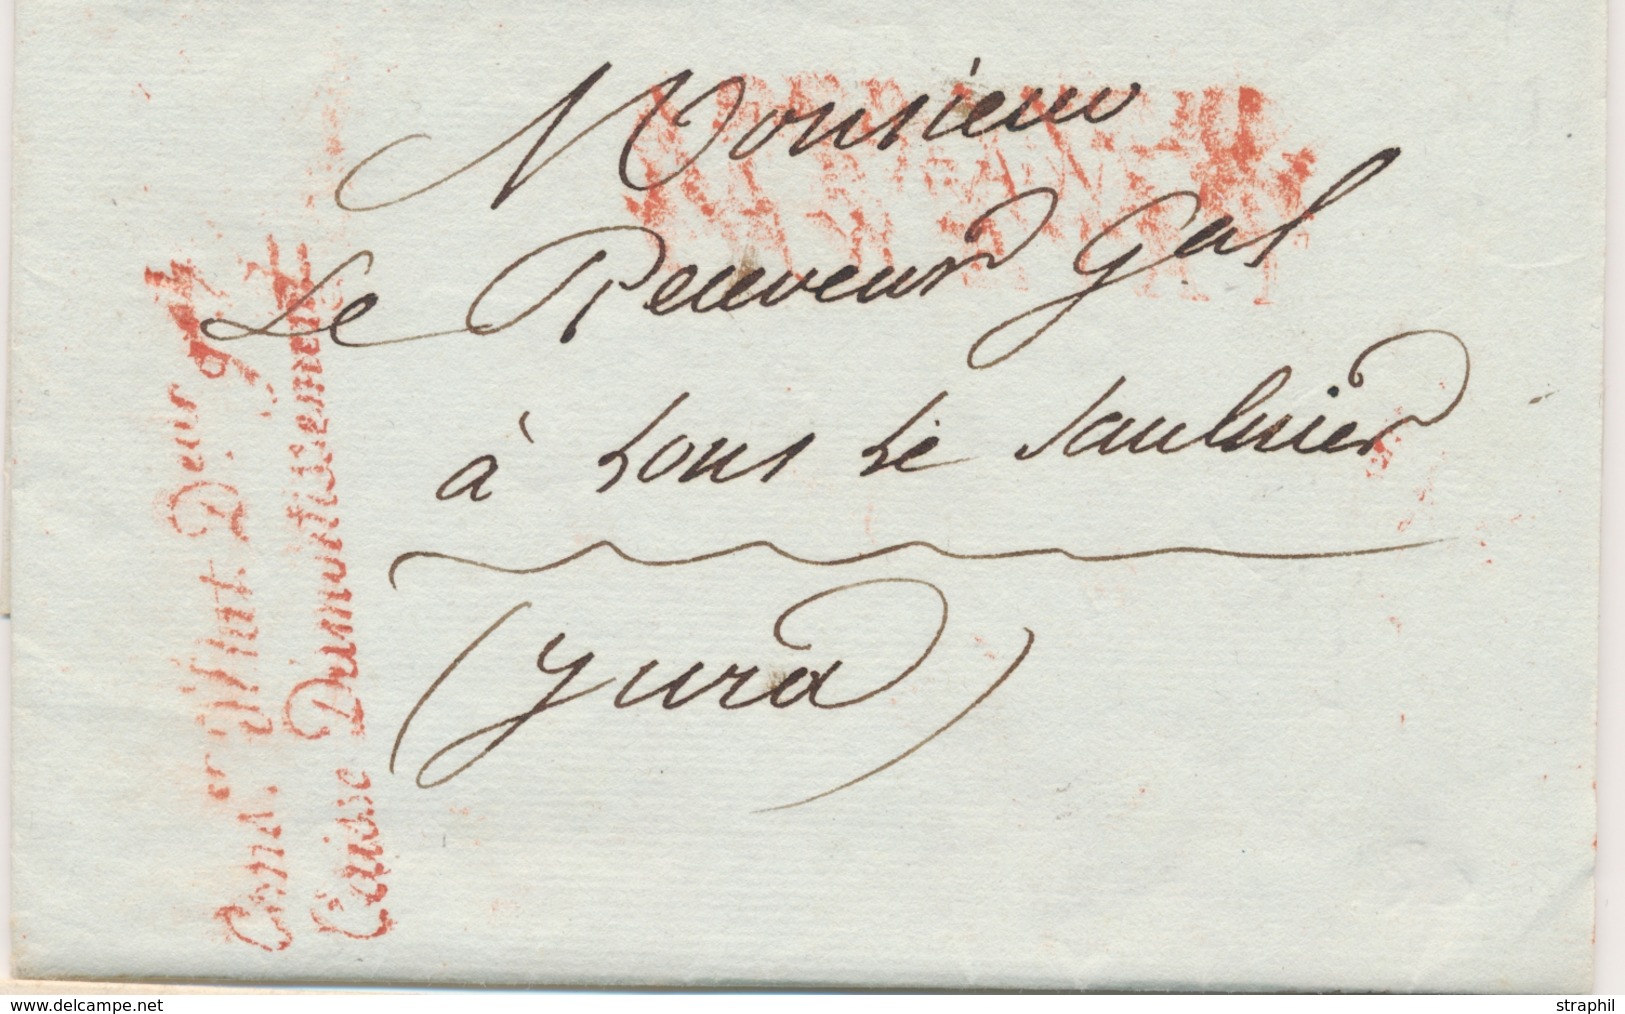 Monsieur
Le Receveur Gal
à Lons le Saulnier
(Jura)
Consr. d'Etat Deur Gal
Caisse Damortissement
www.delcampe.net
straphil